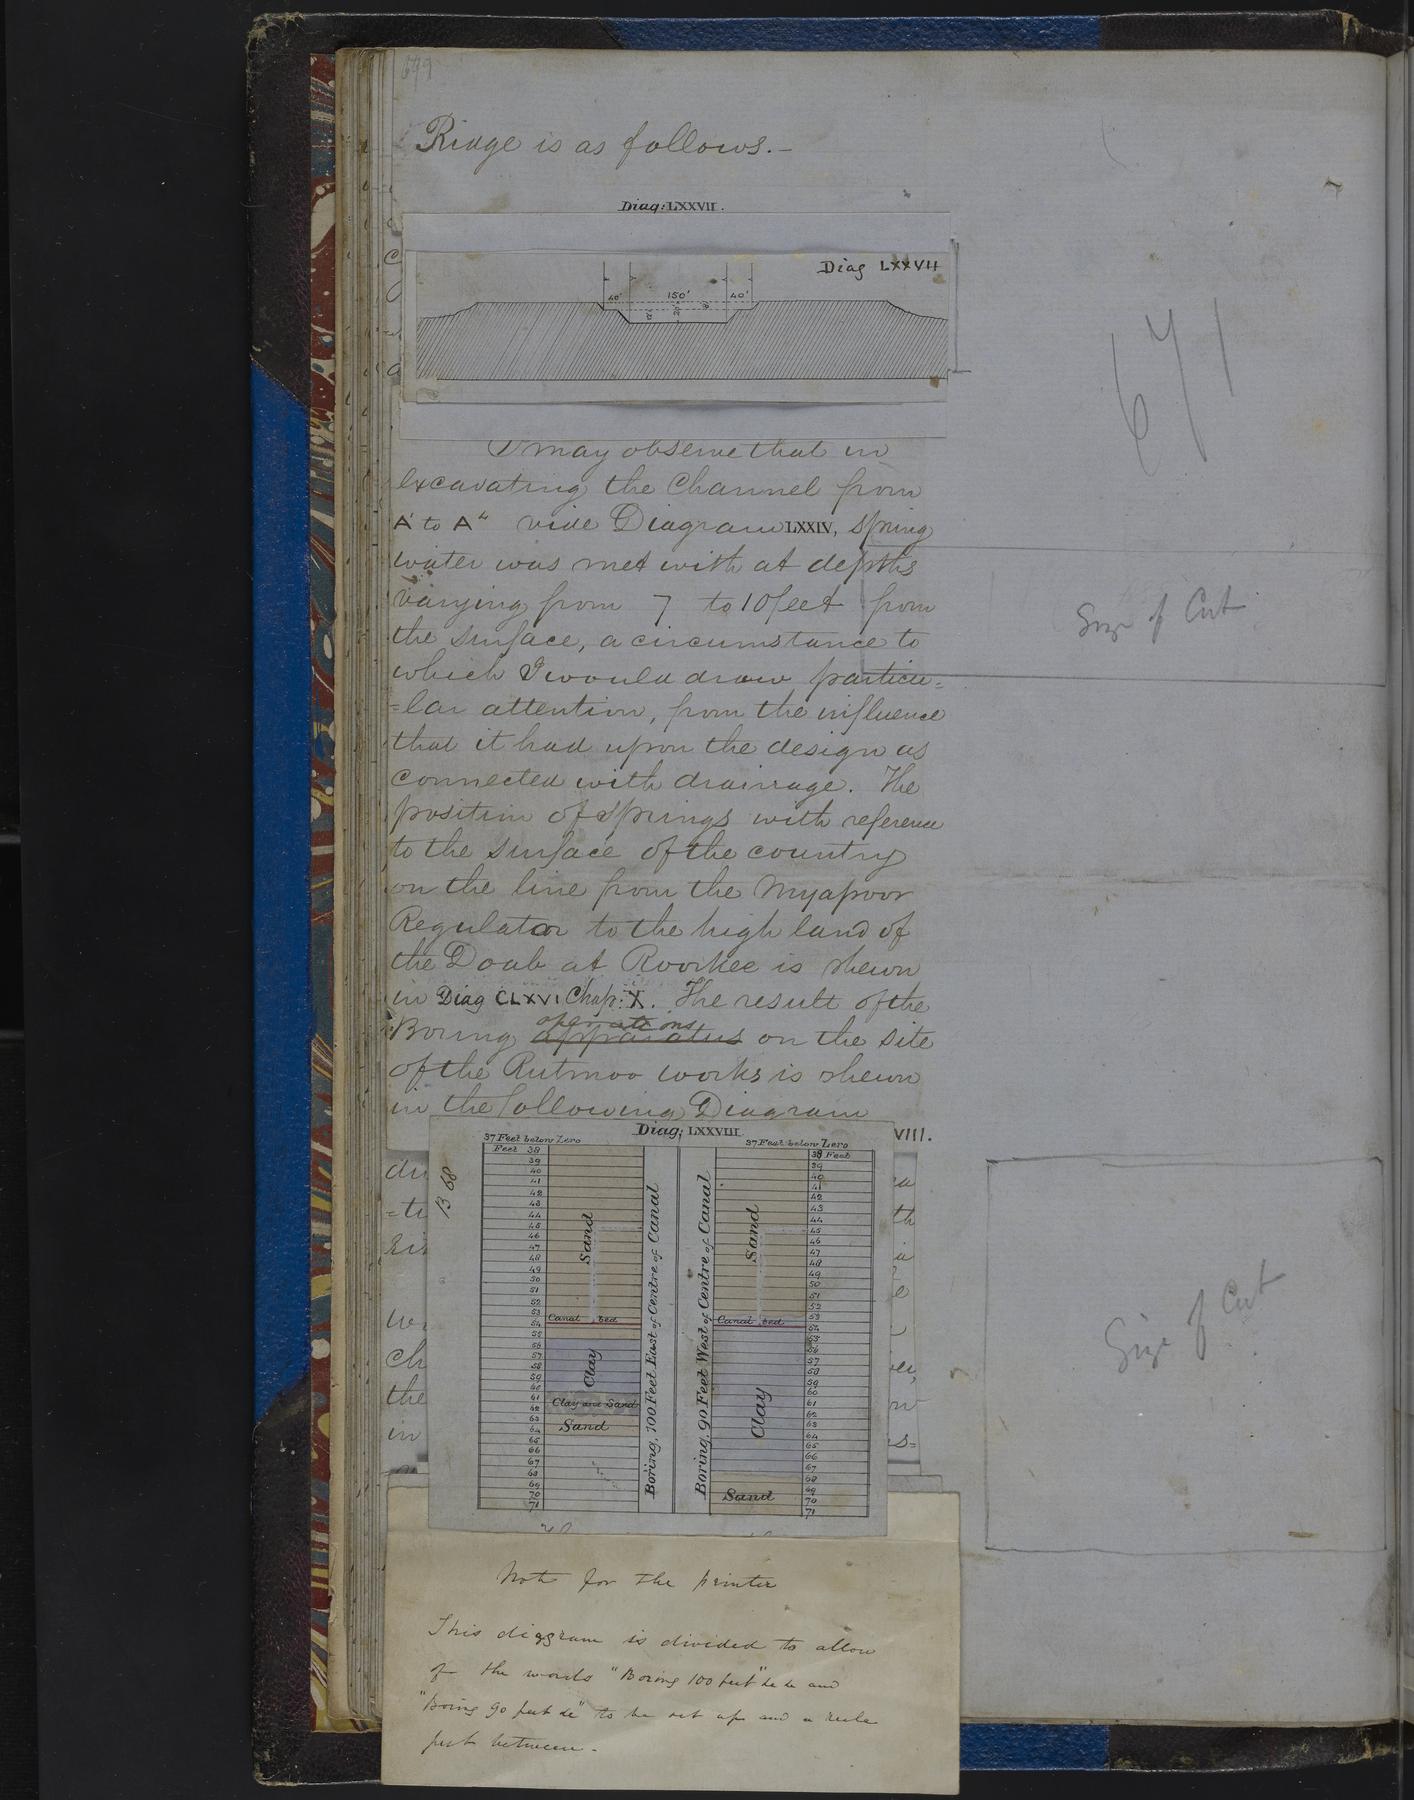 699
Ridge is as follows.-
Diag: LXXVII.
Diag LXXVII
40' 150' 40'
12' 20' 8'
671
I may observe that in
excavating the Channel from
A' to A" vide Diagram LXXIV, spring
water was met with at depths
varying from 7 to 10 feet from
the surface, a circumstance to
which I would draw particu=
=lar attention, from the influence
that it had upon the design as
connected with drainage. The
position of springs with reference
to the surface of the country
on the line from the Myapoor
Regulator to the high land of
the Doab at Roorkee is shewn
in Diag CLXVI Chap: X. The result of the
Boring apparatus operations on the site
of the Rutmoo works is shewn
in the following Diagram
VIII.
Size of Cut
Diag: LXXVIII.
37 Feet below Zero
37 Feet below Zero
Feet 38
39
40
41
42
43
44
45
46
47
48
49
50
51
52
53
54
55
56
57
58
59
60
61
62
63
64
65
66
67
68
69
70
71
Sand
Canal bed
Clay
Clay and Sand
Sand
Boring, 100 Feet East of Centre of Canal
Boring, 90 Feet West of Centre of Canal
Sand
Canal bed
Clay
Sand
38 Feet
39
40
41
42
43
44
45
46
47
48
49
50
51
52
53
54
55
56
57
58
59
60
61
62
63
64
65
66
67
68
69
70
71
Size of Cut
Note for the printer
This diagram is divided to allow
of the words "Boring 100 feet" &c &c and
"Boring 90 feet &c" to be set up and a rule
put between.-